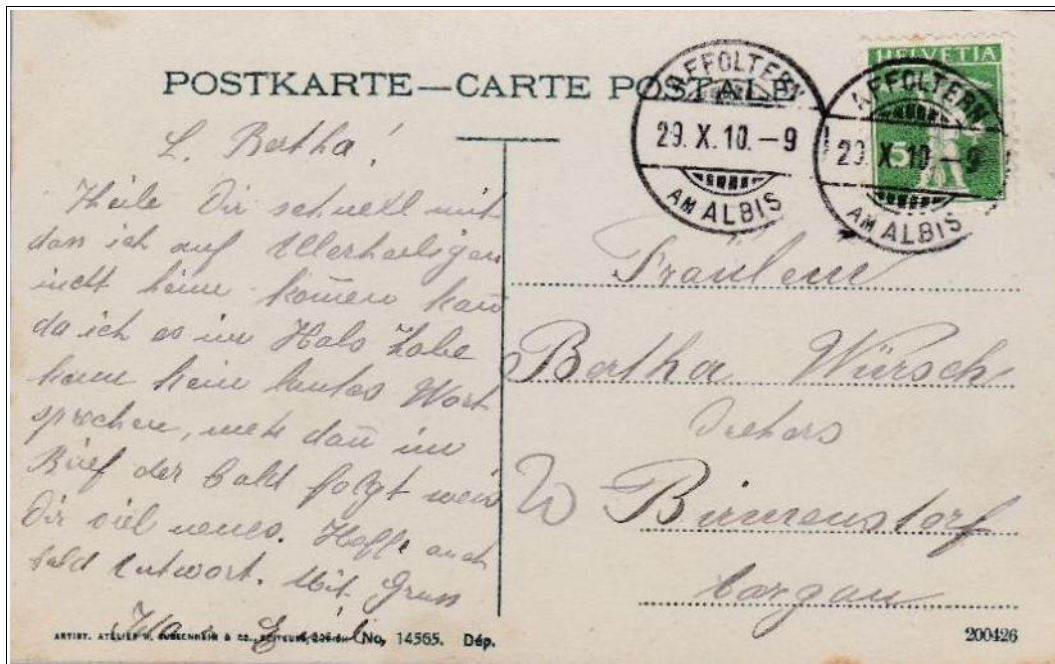 POSTKARTE—CARTE POSTALE
HELVETIA
5
AFFOLTERN
29. X. 10. – 9
AM ALBIS
AFFOLTERN
29. X. 10. – 9
AM ALBIS
L. Bertha!
Theile Dir schnell mit
dass ich auf Allerheiligen
nicht heim kom̄en kan̄
da ich es im Hals habe
kann kein lautes Wort
sprechen, mehr dan̄ im
Brief der bald folgt weis
Dir viel neues. Hoffe auch
bald Antwort. Mit Gruss
Fräulein
Bertha Würsch
Birmenstorf
Aargau
ARTIST. ATELIER H. GUGGENHEIM & CO., EDITEURS, ZÜRICH No, 14565. Dép.
200426